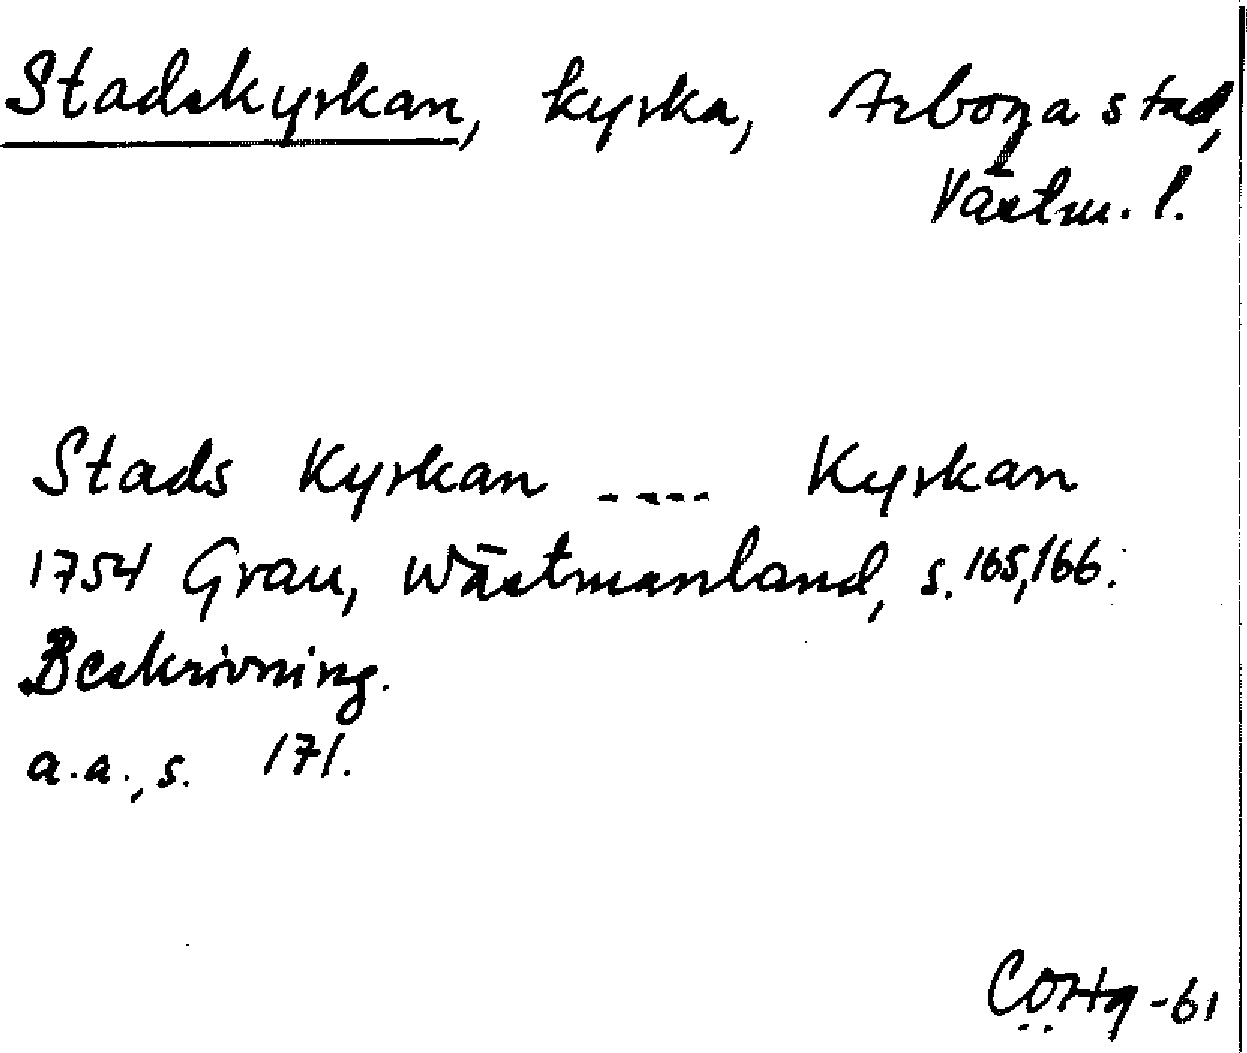 Stadskyrkan, kyrka, Arboga stad,
Västm. l.
Stads Kyrkan ---- Kyrkan
1754 Grau, Wästmanland, s. 165, 166.
Beskrivning.
a.a., s. 171.
-61